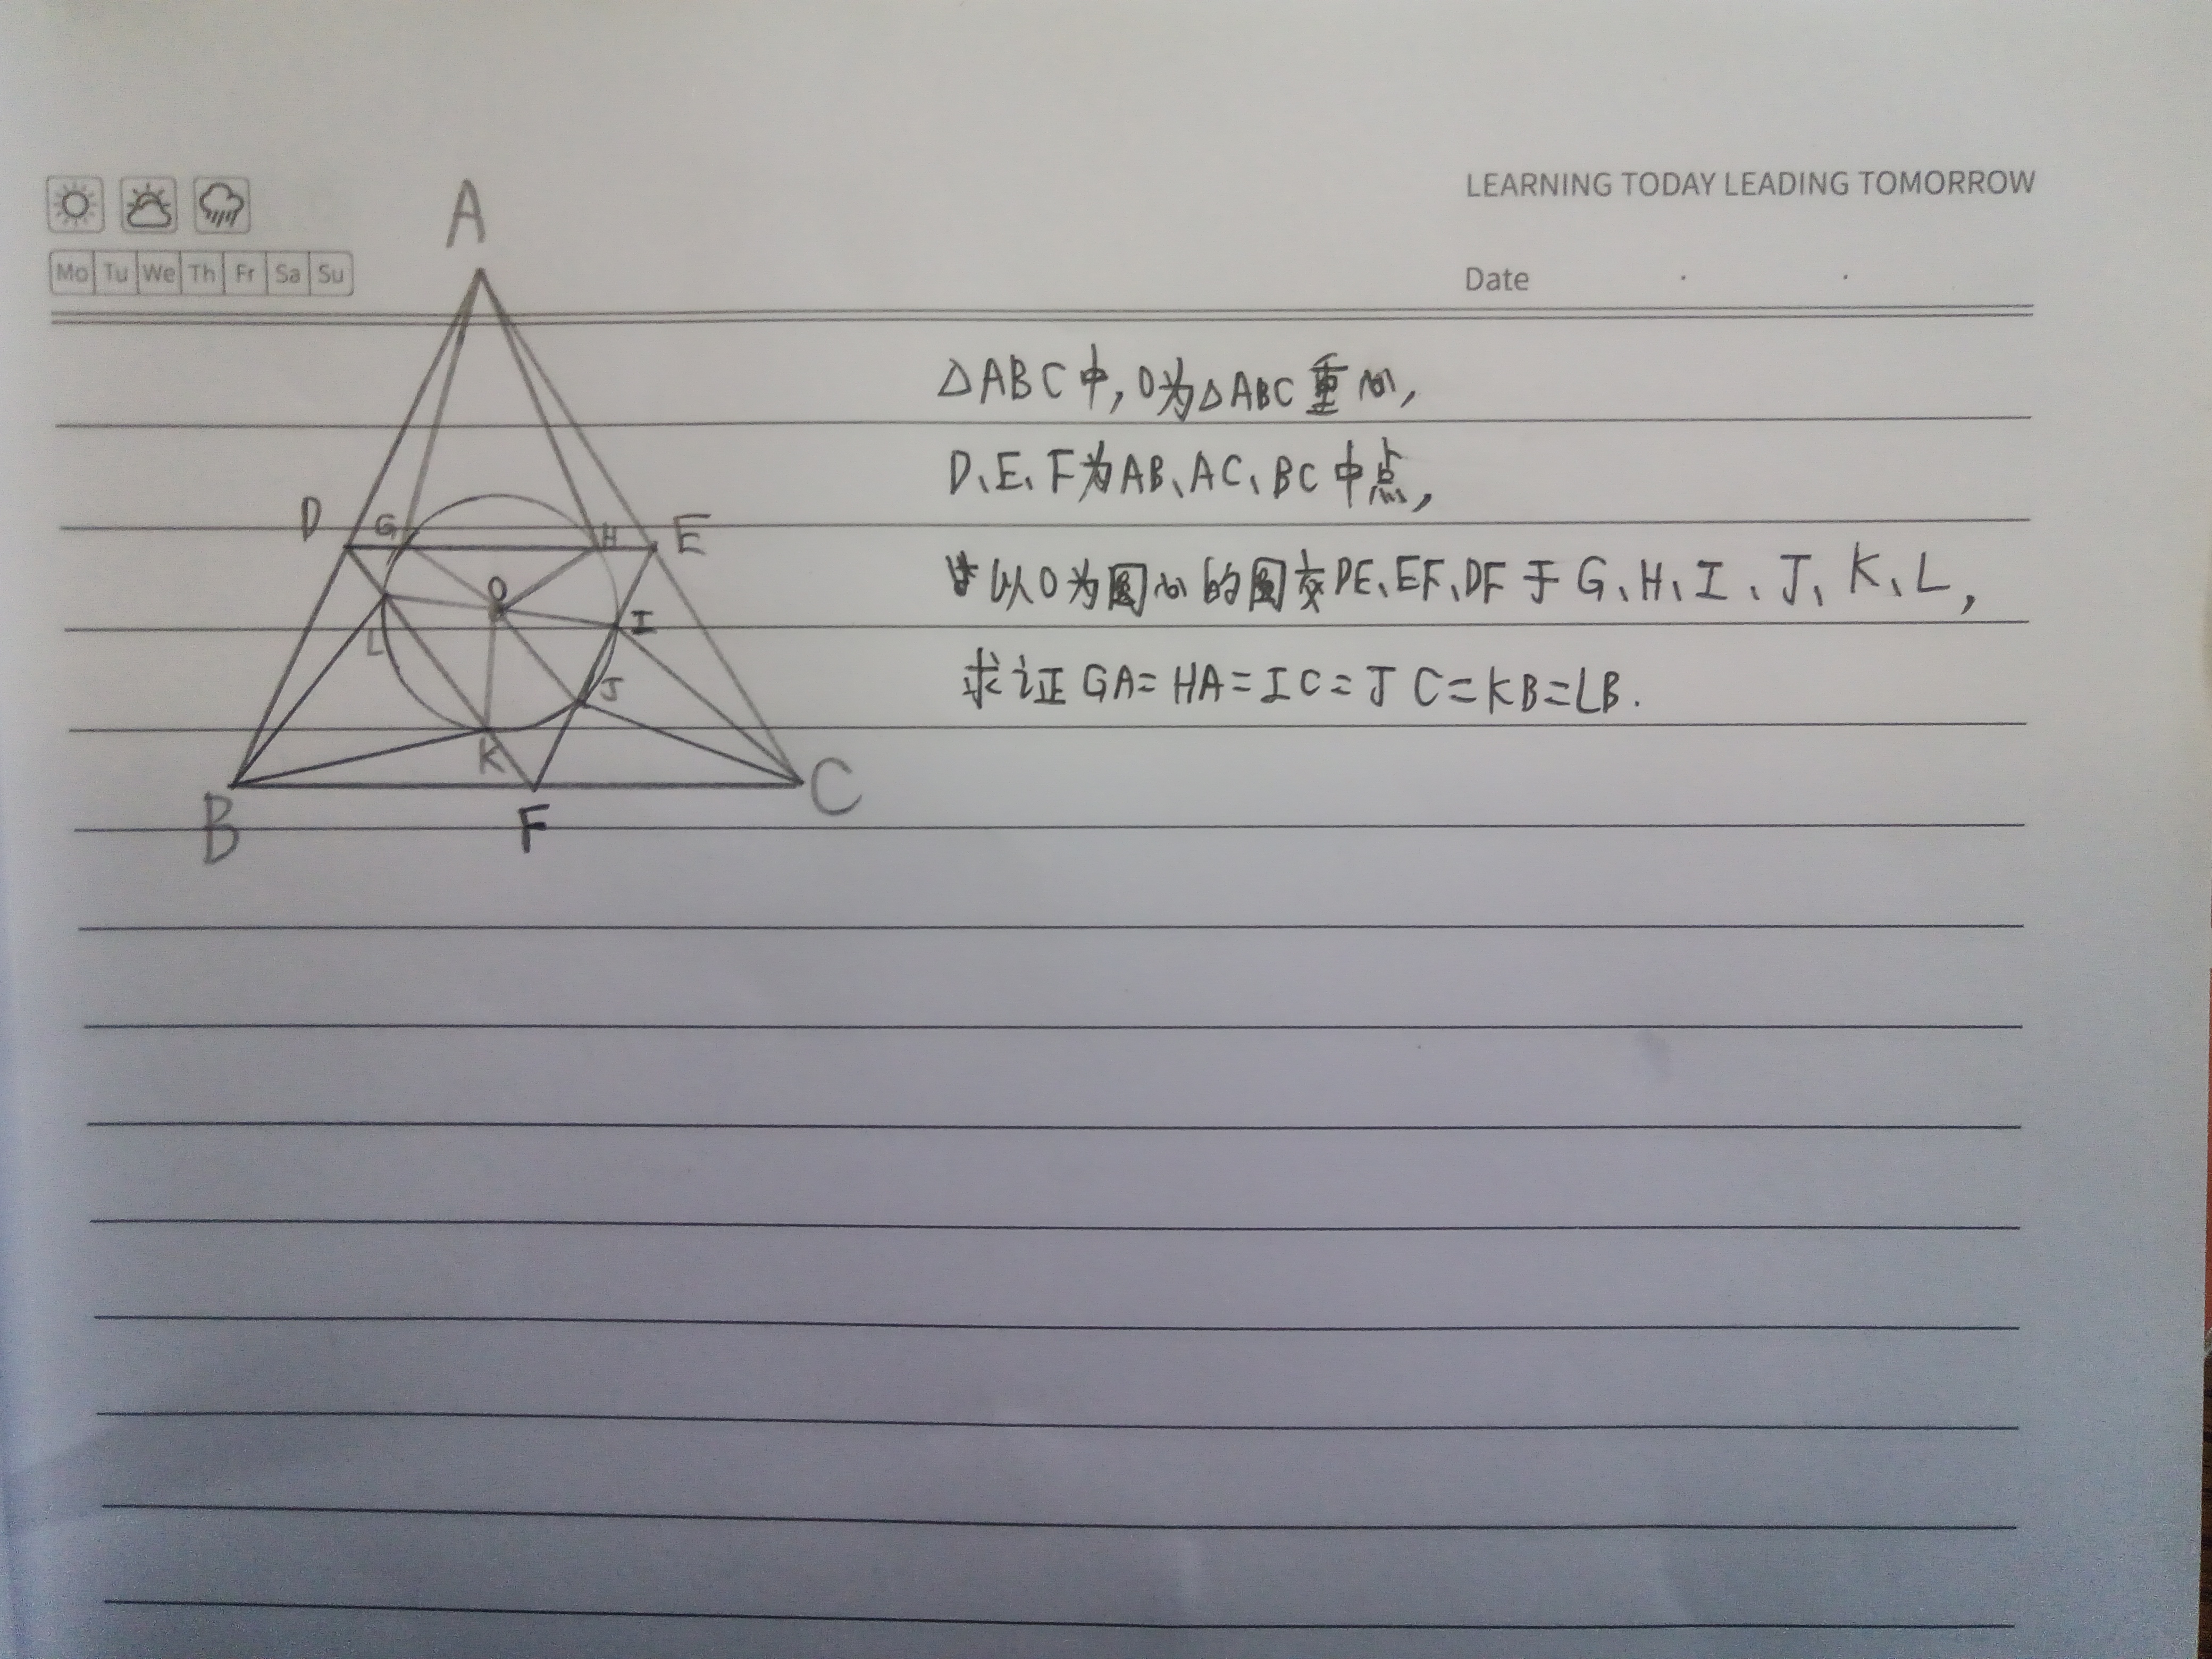 LEARNING TODAY LEADING TOMORROW
Mo Tu We Th Fr Sa Su
Date
A
D G H E
O
L I
J
K
B F C
△ABC中,O为△ABC重心,
D、E、F为AB、AC、BC中点,
以O为圆心的圆交DE、EF、DF于G、H、I、J、K、L,
求证GA=HA=IC=JC=KB=LB.